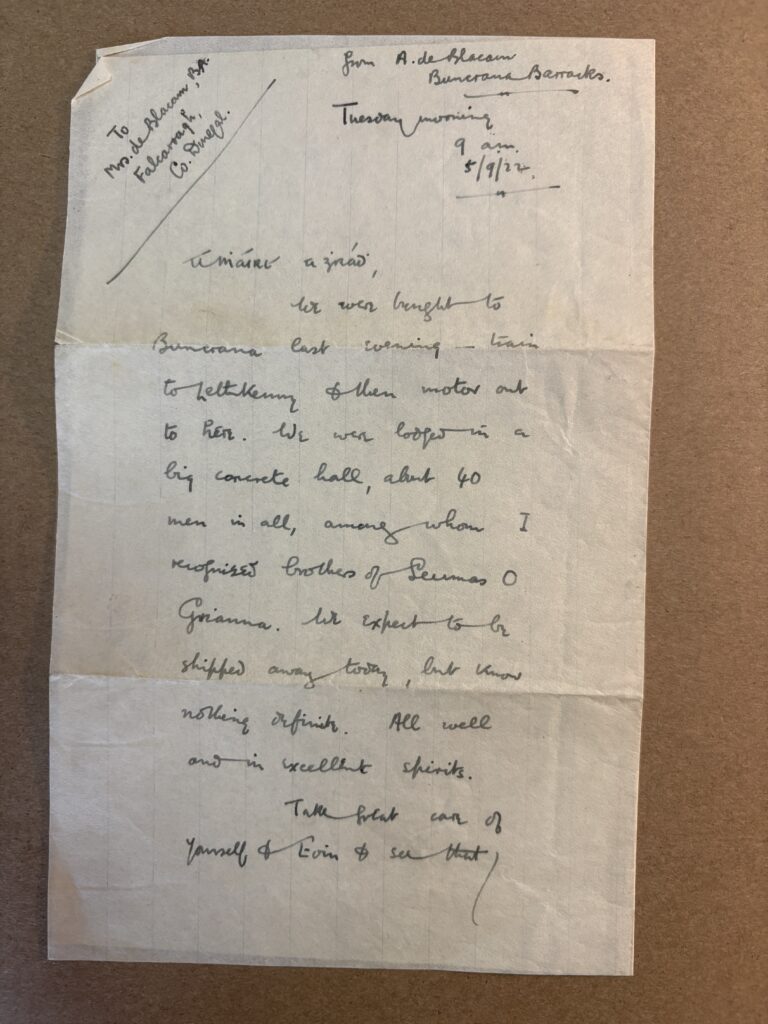 To
Mrs. de Blacam, BA.
Falcarragh,
Co. Donegal.
from A. de Blacam
Buncrana Barracks.
Tuesday morning
9 am.
5/9/22.
A Máire a ġráḋ,
We were brought to
Buncrana last evening — train
to Letterkenny & then motor out
to here. We were lodged in a
big concrete hall, about 40
men in all, among whom I
recognised brothers of Seumas O
Grianna. We expect to be
shipped away today, but know
nothing definite. All well
and in excellent spirits.
Take great care of
yourself & Eoin & see that